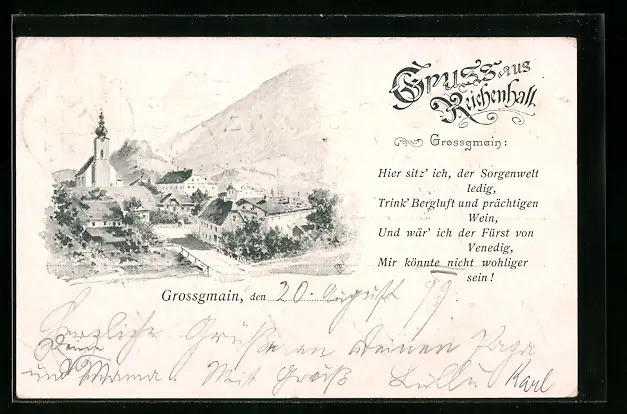 Gruss aus
Reichenhall.
Grossgmain:
Hier sitz' ich, der Sorgenwelt
ledig,
Trink' Bergluft und prächtigen
Wein,
Und wär' ich der Fürst von
Venedig,
Mir könnte nicht wohliger
sein!
Grossgmain, den 20. August 99.
Herzliche Grüße an Deinen Papa
Deine
und Mama. Mit Gruß Lullu Karl